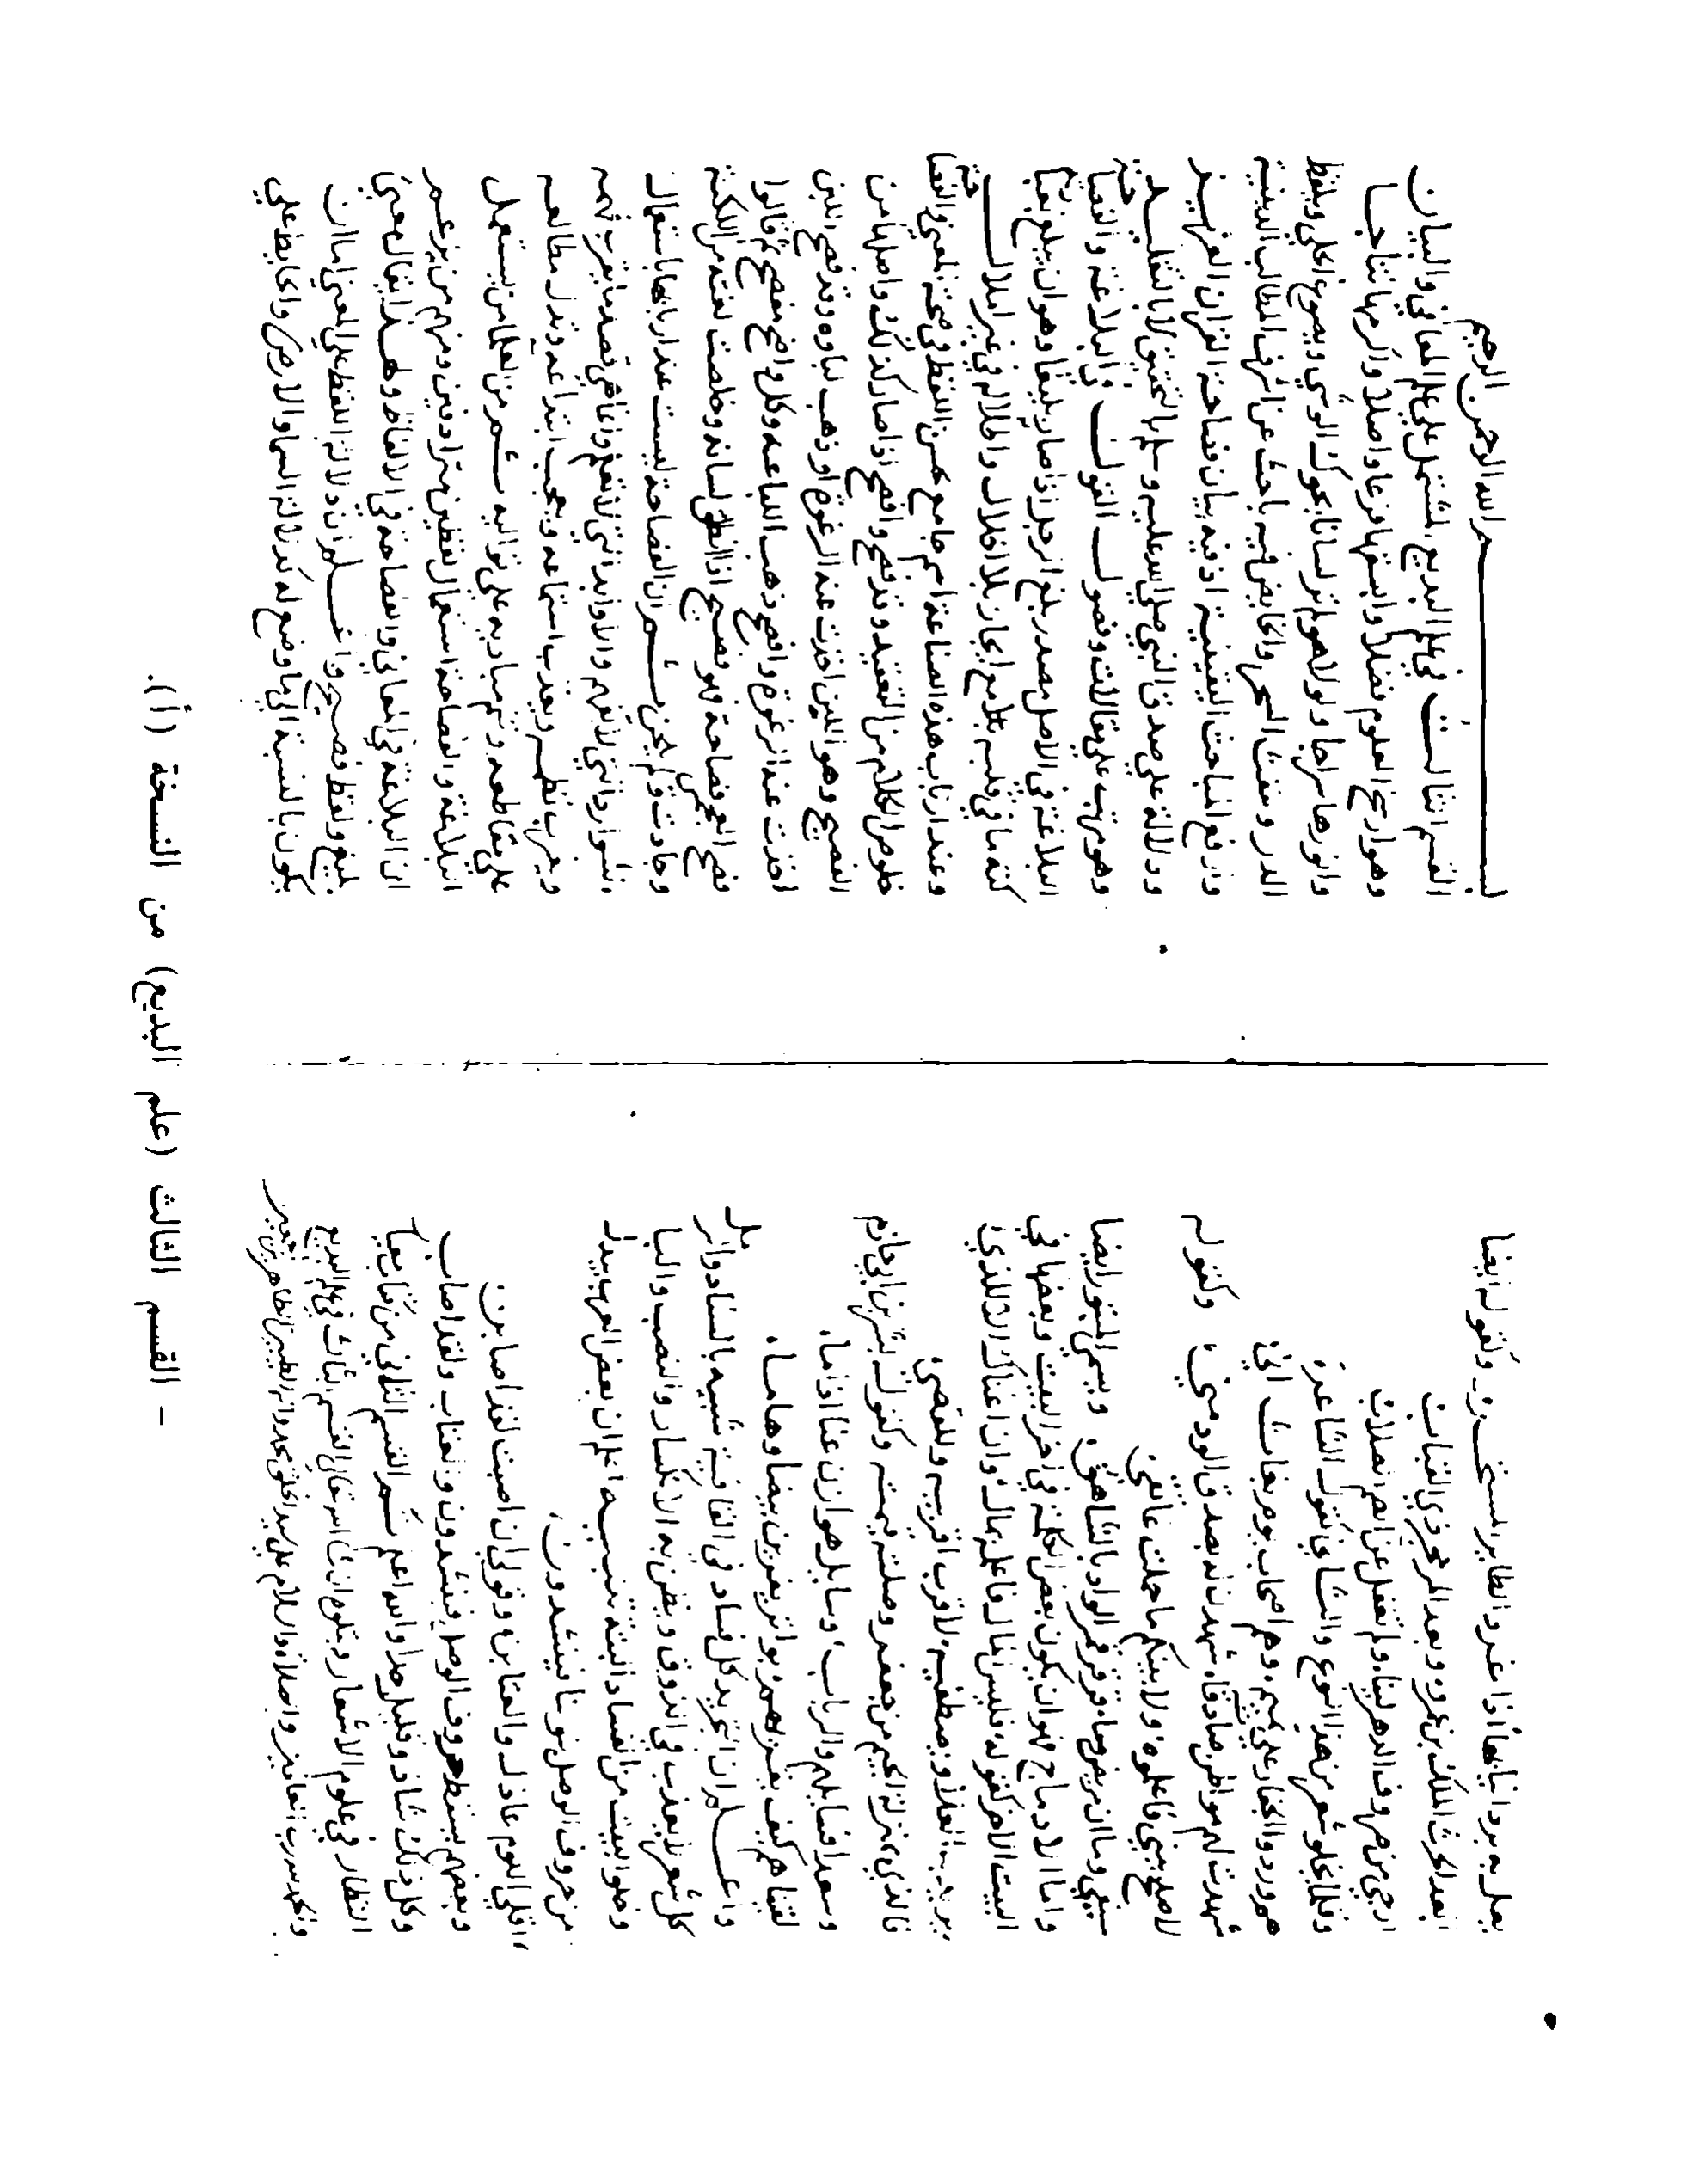 يعل به برد انيابها اذا غرد الطاير المستحر وكقوله ايضا
ابعد الحرث الملك بن عمرو وبعد الخير حجر ذي القباب
ارجي من صروف الدهر لينا ولم تغفل عن الصم الصلاب
وقلما يخلو شعر من هذا النوع والسناد كقول الشاعر
هم وردوا الجفار على تميم وهم اصحاب يوم بعاث اني
شهدت لهم مواطن صادقات شهدن له بصدق الود مني وكقوله
لا صلح بيني فاعلموه ولا بينكم ما حملت عاتقي
سيفي وما ان مريض وما قرقر قمر الواد بالشاهق ويسمى المبتور ايضا
واما الادماج فهو ان يكون بعض الكلمة في اخر البيت وبعضها في
البيت الاخر كقوله فليس المال فاعلمه بمال وان اغناك الا للذي
يريد به العلاء ويصطفيه لاقرب اقربيه وللقصي
فالذي بمنزلة الجيم من جعفر وصلته تتمته وكقول بشر بن ابي حازم
وسعدا فسايلهم والرباب وسايل هوازن عنا اذا ما
لقيناهم كيف نعليهم بواتر يفرين بيضا وهاما
واعلم ان التجريد كل فساد في القافية شبيه بالسناد واكثر
كل شعر لا يعذب في الذوق ويظن به الانكسار والنصب والبا
وخلو البيت من الفساد البتة تنبيه اعلم ان بعض العرب يبدل
من حروف الوصل نونا فينشدون
اقلي اللوم عاذل والعتابن وقولي ان اصبت لقد اصابن
وبعضهم يسقط حروف الوصل فينشدون والعتاب ولقد اصاب
وكل ذلك شاذ وقليل جدا والله اعلم تم القسم الثاني من كتاب معيار
النظار في علوم الاشعار ويتلوه ان شاء الله تعالى القسم الثالث في علم البديع
والحمد لله رب العالمين والصلاة والسلام على سيد الخلق محمد واله الطيبين الطاهرين
بسم الله الرحمن الرحيم
القسم الثالث في علم البديع يشتمل على علم المعاني والبيان
وهو ارسخ العلوم فضلا وابسقها فرعا واصلا واكرمها نتاجا
وانورها سراجا ولولاه لم تر لسانا يحوك الوشي ويصوغ الحلي ويلفظ
الدر وينفث السحر والخايض فيه باحث عن اشرف المطالب الدينية
وارفع المباحث اليقينية اذ فيه بيان فصاحة القرآن العزيز
ودلالة على صدق النبي صلى الله عليه وسلم بالتحقيق لا بالتقليد
وهو مرتب على مقالات وفصول القول في البلاغة والفصاحة
البلاغة في الاصل مصدر بلغ الرجل اذا صار بليغا وهو ان يبلغ بعبارته
كنه ما في قلبه مع ايجاز بلا اخلال واطالة في غير املال
وعند ارباب هذه الصناعة اسم جامع لحسن اللفظ في صحة المعنى والفصاحة
خلوص الكلام من التعقيد وقد فصح وافصح اذا صار كذلك واصلها من
الفصيح وهو اللبن اخذت عنه الرغوة او ذهب لباؤه وقد فصح اللبن
اخذت عنه الرغوة وافصح ذهب اللبا عنه وكل واضح مفصح ثم قالوا
فصح العجمي فصاحة فهو فصيح اذا انطلق لسانه وخلصت لغته من اللكنة
وجادت ولم يلحن ثم ان الفصاحة ليست عند اربابها باستعمال
الشوارد التي لا تفهم والاوابد التي لا تعلم وانما هي قصد ما يقرب فهمه
ويغرب نظمه ويعذب استماعه ويعجب ابتداعه وتدل مطالعه
على مقاطعه وتتم مباديه على تواليه ثم من العلما من يستعمل
البلاغة والفصاحة استعمال لفظين مترادفين ومنهم من يزعم
ان البلاغة في المعاني والفصاحة في الالفاظ ولهذا يقال معنى
بليغ ولفظ فصيح واعلم ان دلالة اللفظ على المعنى اما ان
يكون بالنسبة الى ما وضع له كدلالة السما والارض والحايط على
- القسم الثالث (علم البديع) من النسخة (أ).